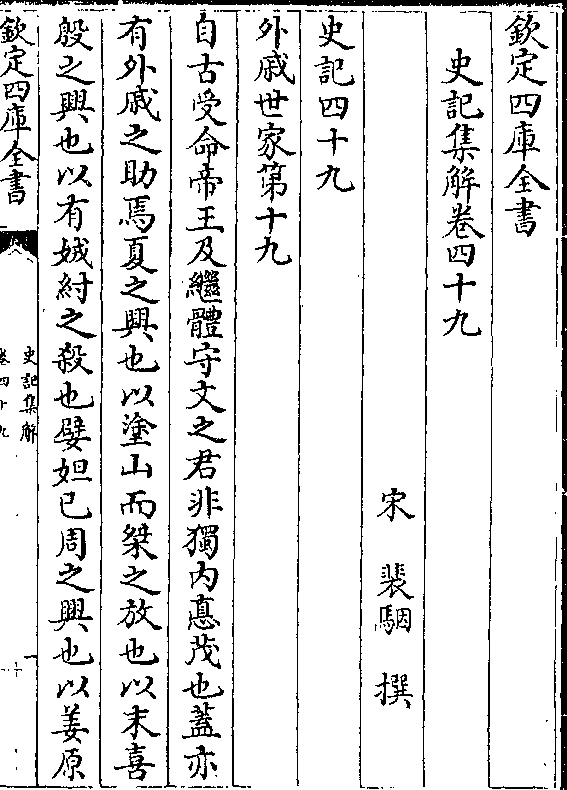 欽定四庫全書
史記集解卷四十九
宋 裴駰 撰
史記四十九
外戚世家第十九
自古受命帝王及繼體守文之君非獨内悳茂也蓋亦
有外戚之助焉夏之興也以塗山而桀之放也以末喜
殷之興也以有娀紂之殺也嬖妲已周之興也以姜原
欽定四庫全書
史記集解
卷四十九
一